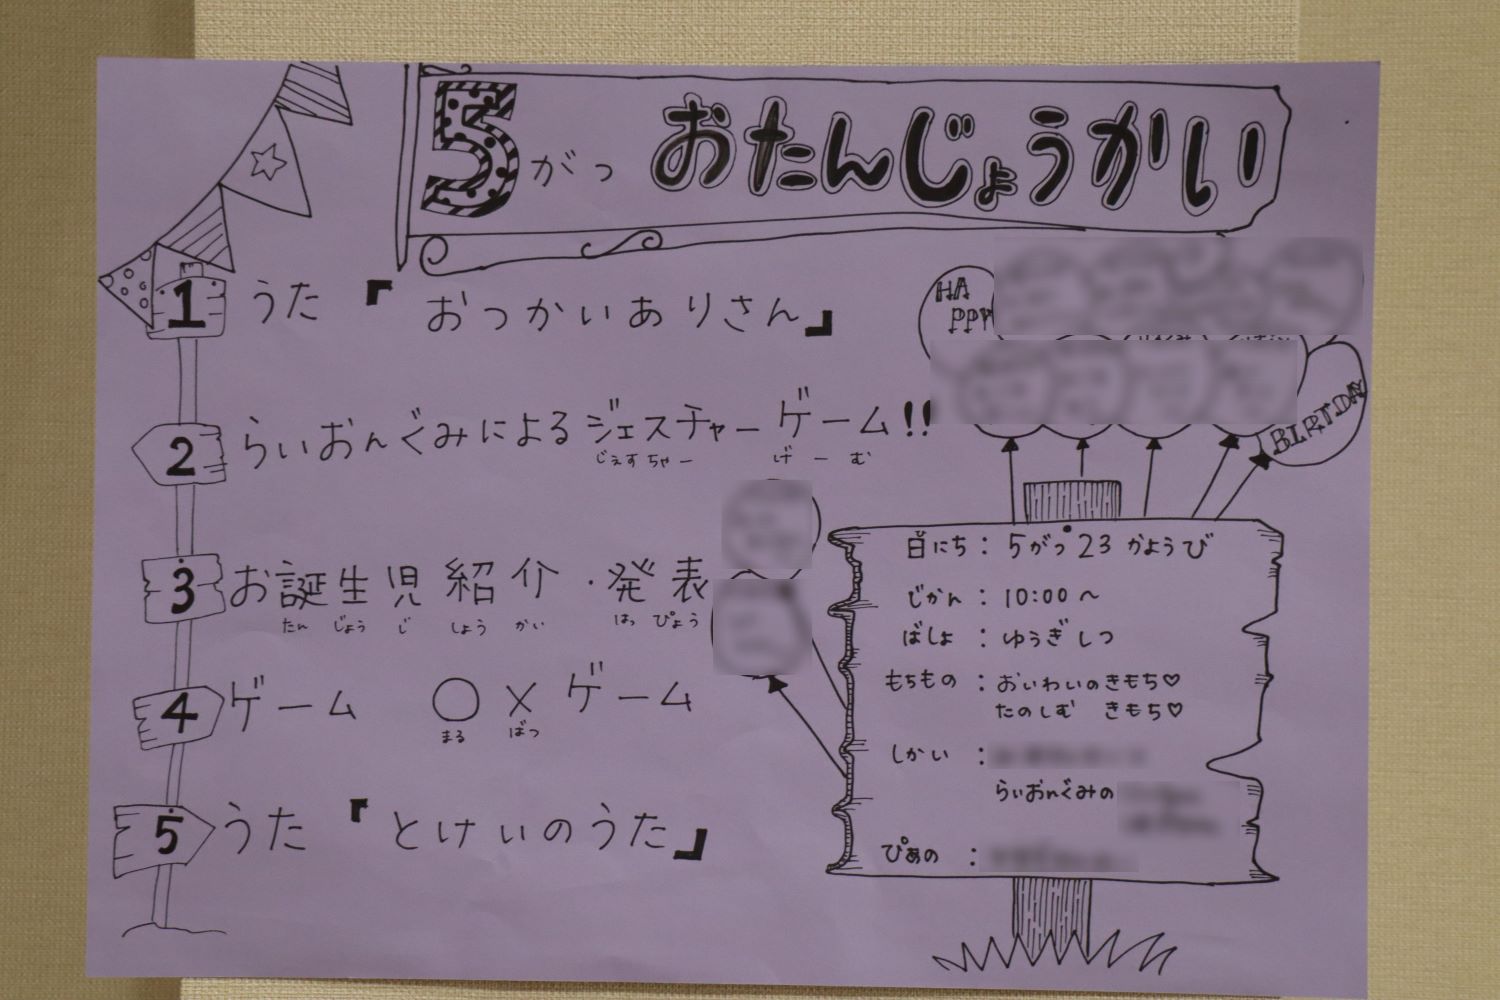 5がつ おたんじょうかい
1 うた 『おつかいありさん』
HA
PPY
2 らいおんぐみによるジェスチャーゲーム!!
じぇすちゃー げーむ
BIRTDAY
3 お誕生児紹介・発表
たん じょう じ しょう かい はっ ぴょう
4 ゲーム ○×ゲーム
まる ばつ
5 うた 『とけいのうた』
日にち：5がつ23かようび
じかん：10:00～
ばしょ：ゆうぎしつ
もちもの：おいわいのきもち♡
たのしむ きもち♡
しかい：
らいおんぐみの
ぴあの：